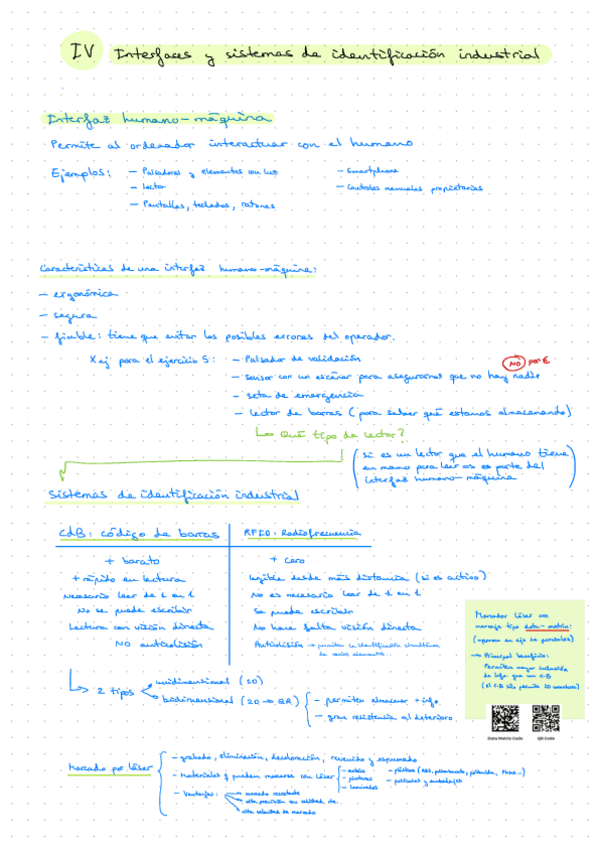 IV Interfaces y sistemas de identificación industrial
Interfaz humano-máquina
Permite al ordenador interactuar con el humano
Ejemplos: - Pulsadores y elementos con luz
- Lector
- Pantallas, teclados, ratones
- Smartphone
- Controles manuales propietarios
Características de una interfaz humano-máquina:
- ergonómica
- segura
- fiable: tiene que evitar los posibles errores del operador.
X ej para el ejercicio 5: - Pulsador de validación
- sensor con un escáner para asegurarnos que no hay nadie
NO por €
- seta de emergencia
- lector de barras (para saber qué estamos almacenando)
↳ Qué tipo de lector?
(si es un lector que el humano tiene
en mano para leer es parte del
interfaz humano-máquina)
Sistemas de identificación industrial
CdB: código de barras
+ barato
+ rápido en lectura
Necesario leer de 1 en 1
No se puede escribir
Lectura con visión directa
NO anticolisión
RFID: Radiofrecuencia
+ caro
legible desde más distancia (si es activo)
No es necesario leer de 1 en 1
Se puede escribir
No hace falta visión directa
Anticolisión → permite la identificación simultánea
de varios elementos
↳ 2 tipos
unidimensional (1D)
bidimensional (2D → QR)
- permiten almacenar + info.
- gran resistencia al deterioro.
Marcador láser con
mensaje tipo data-matrix:
→ Principal beneficio:
Permiten mayor inclusión
de info que un CB
Data Matrix Code
QR Code
Marcado por láser
- grabado, eliminación, decoloración, recocido y espumado
- Materiales q pueden marcarse con láser
- metales
- plásticos
- laminados
- películas y embalajes
- Ventajas:
marcado resistente
alta velocidad de marcado